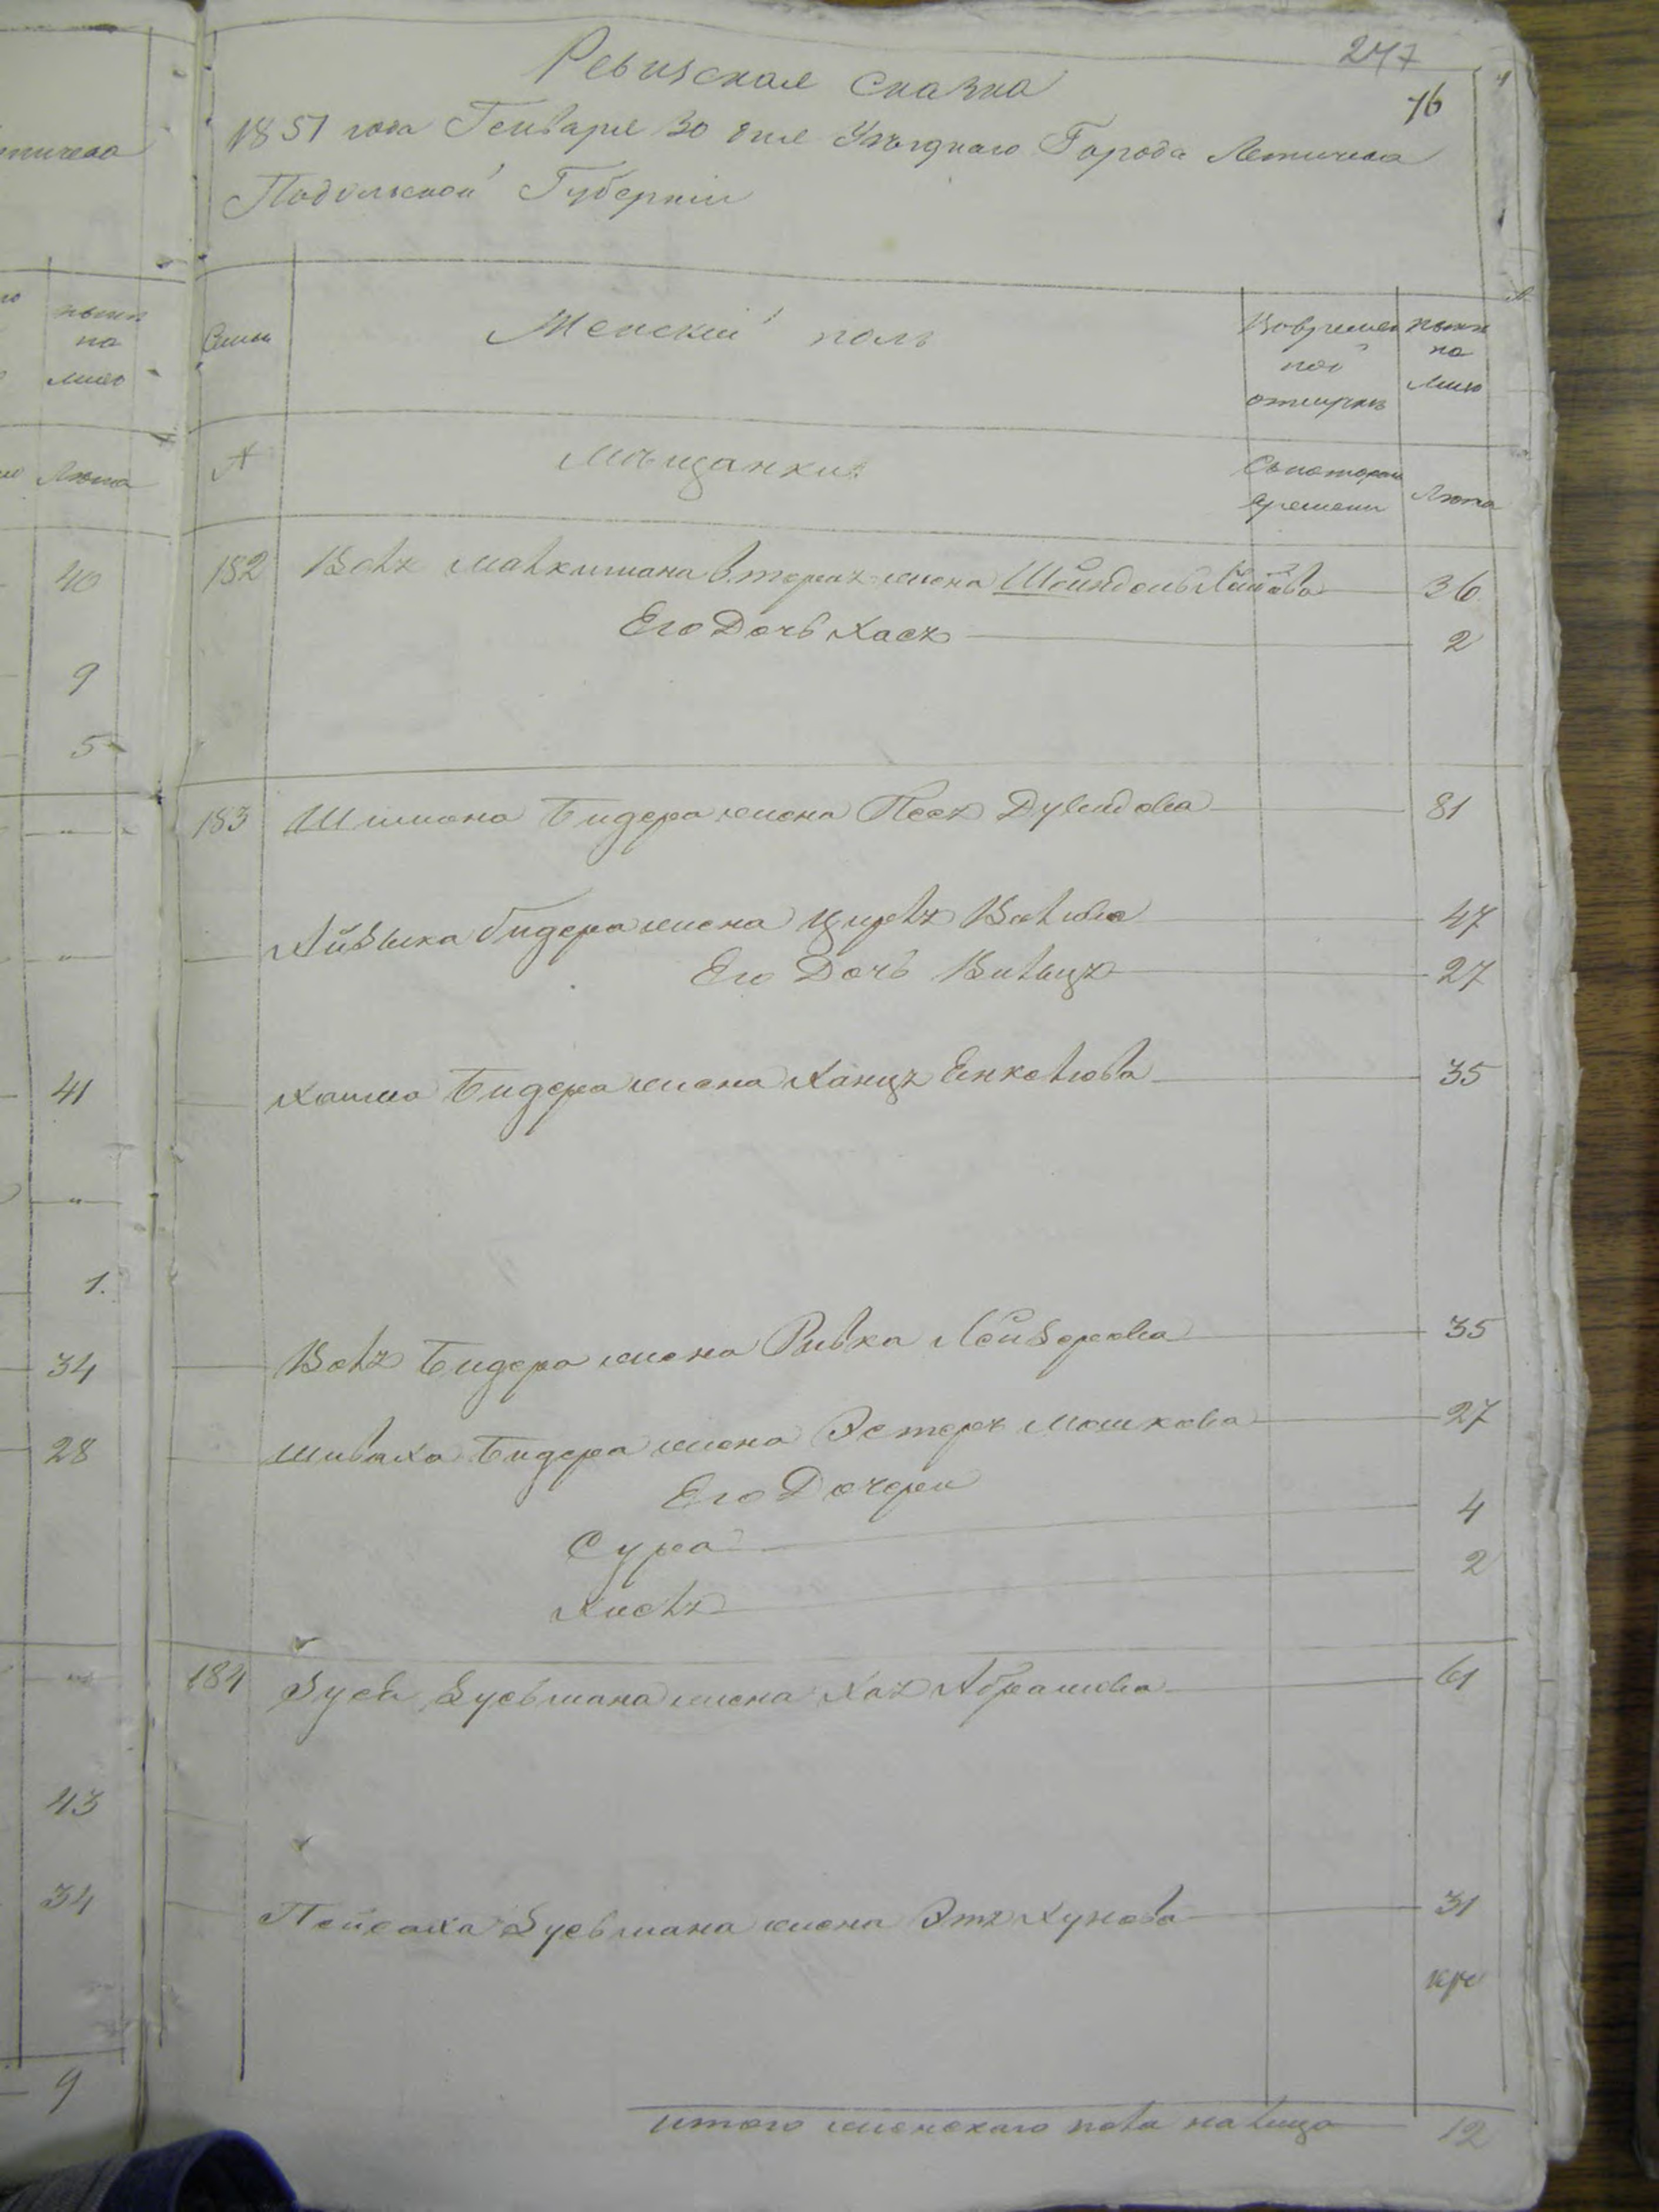 247
76
Ревизская сказка
1851 года Генваря 30 дня Уѣзднаго Города Летичева
Подольской Губерніи
Семьи
Женскій полъ
Во временной отлучкѣ
нынѣ на лицо
А
Мѣщанки.
Съ котораго времени
Лѣта
182 Волъ вторая жена Шейндель 36
Его Дочь Хася 2
183 Шимона Бидера жена Песя Дувидова 81
Айзыка Бидера жена Цирля Волкова 47
Его Дочь 27
Хаима Бидера жена Ханця Енкелова 35
Бидера жена Ривка Лейзорова 35
Бидера жена Эстеръ Мошкова 27
Его Дочери
Сура 4
2
184 Зуся Зусьмана жена Хая Абрамова 61
Пейсаха Зусьмана жена Этя Хунова 31
Итого женскаго пола на лицо 12
нынѣ
на
лицо
Лѣта
40
9
5
41
1.
34
28
43
34
9